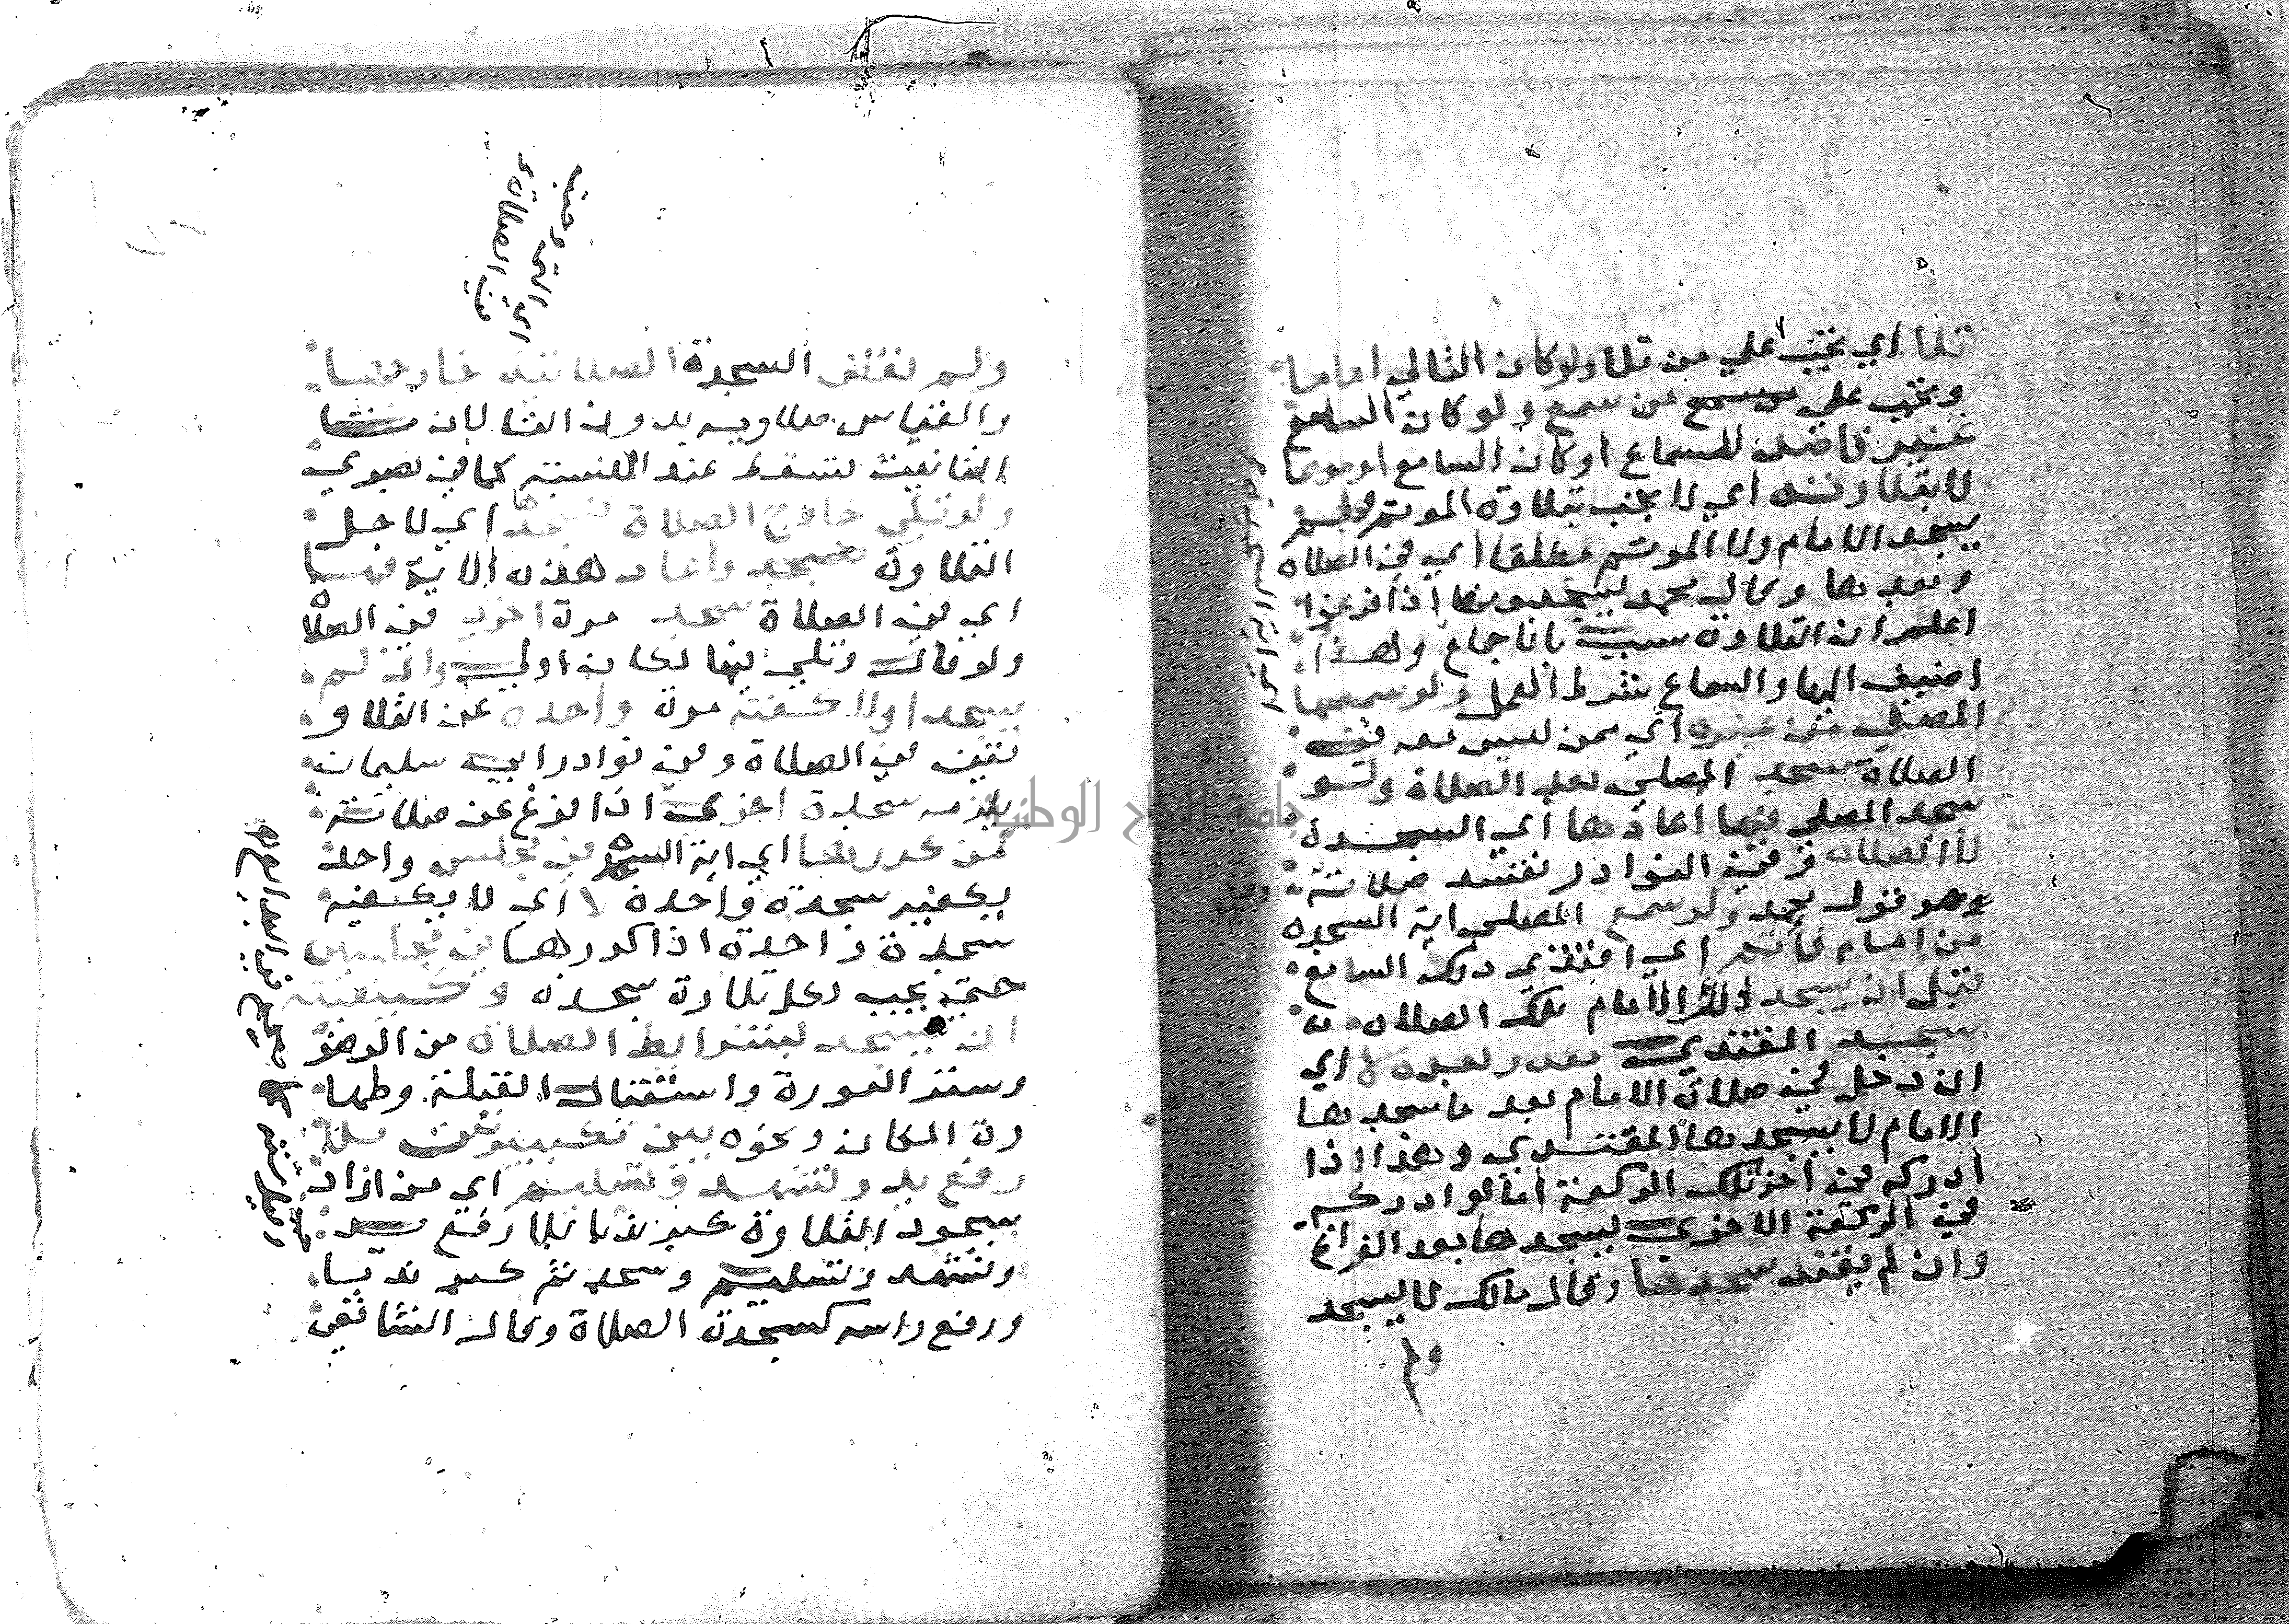 تلا اي يجب علي من تلا ولو كان التالي اماما
ويجب علي من سمع ولو كان السامع
غير قاصد للسماع او كان السامع او موتما
لا بتلاوته اي لا يجب بتلاوة الموتم ولم
يسجد الامام ولا الموتم مطلقا اي في الصلاه
وبعدها وقال محمد يسجدونها اذا فرغوا
اعلم ان التلاوة سبب بالاجماع ولهذا
اضيف اليها والسماع شرط العمل ولو سمعها
المصلي من غيره اي ممن ليس معه في
الصلاة سجد المصلي بعد الصلاة ولو
سجد المصلي فيها اعادها اي السجدة
لا الصلاه وفي النوادر تفسد صلاته
وقيل
وهو قول محمد ولو سمع المصلي اية السجده
من امام فأتم اي اقتدي ذلك السامع
قبل ان يسجد ذلك الامام تلك الصلاه
سجد المقتدي معه وبعده لا اي
ان دخل في صلاة الامام بعد ما سجدها
الامام لا يسجدها المقتدي وهذا اذا
ادركه في اخر تلك الركعة اما لو ادركه
في الركعة الاخري يسجدها بعد الفراغ
وان لم يقتد سجدها وقال مالك لا يسجد
ولم
اي التي وجبت
في الصلاة
ولم تقض السجدة الصلاتية خارجها
والقياس
كما في
ولو تلي خارج الصلاة فسجد اي لاجل
التلاوة فسجد واعاد هذه الاية فيها
اي في الصلاة سجد مرة اخري في الصلاة
ولو قال وتلي فيها لكان اولي وان لم
يسجد اولا كفته مرة واحده عن التلاو
تين في الصلاة وفي نوادر ابي سليمان
يلزمه سجدة اخري اذا فرغ عن صلاته
كمن كررها اي اية السجدة في مجلس واحد
يكفيه سجدة واحدة لا اي لا يكفيه
سجدة واحدة اذا كررها في مجلسين
حتي يجب لكل تلاوة سجدة وكيفيته
ان يسجد بشرايط الصلاة من الوضو
وستر العورة واستقبال القبلة وطها
رة المكان ونحوه بين تكبيرتين بلا
رفع يد وتشهد وتسليم اي من اراد
سجود التلاوة كبر ندبا بلا رفع يد
وتشهد وتسليم وسجد ثم كبر ندبا
ورفع راسه كسجدة الصلاة وقال الشافعي
جامعة النجاح الوطنية